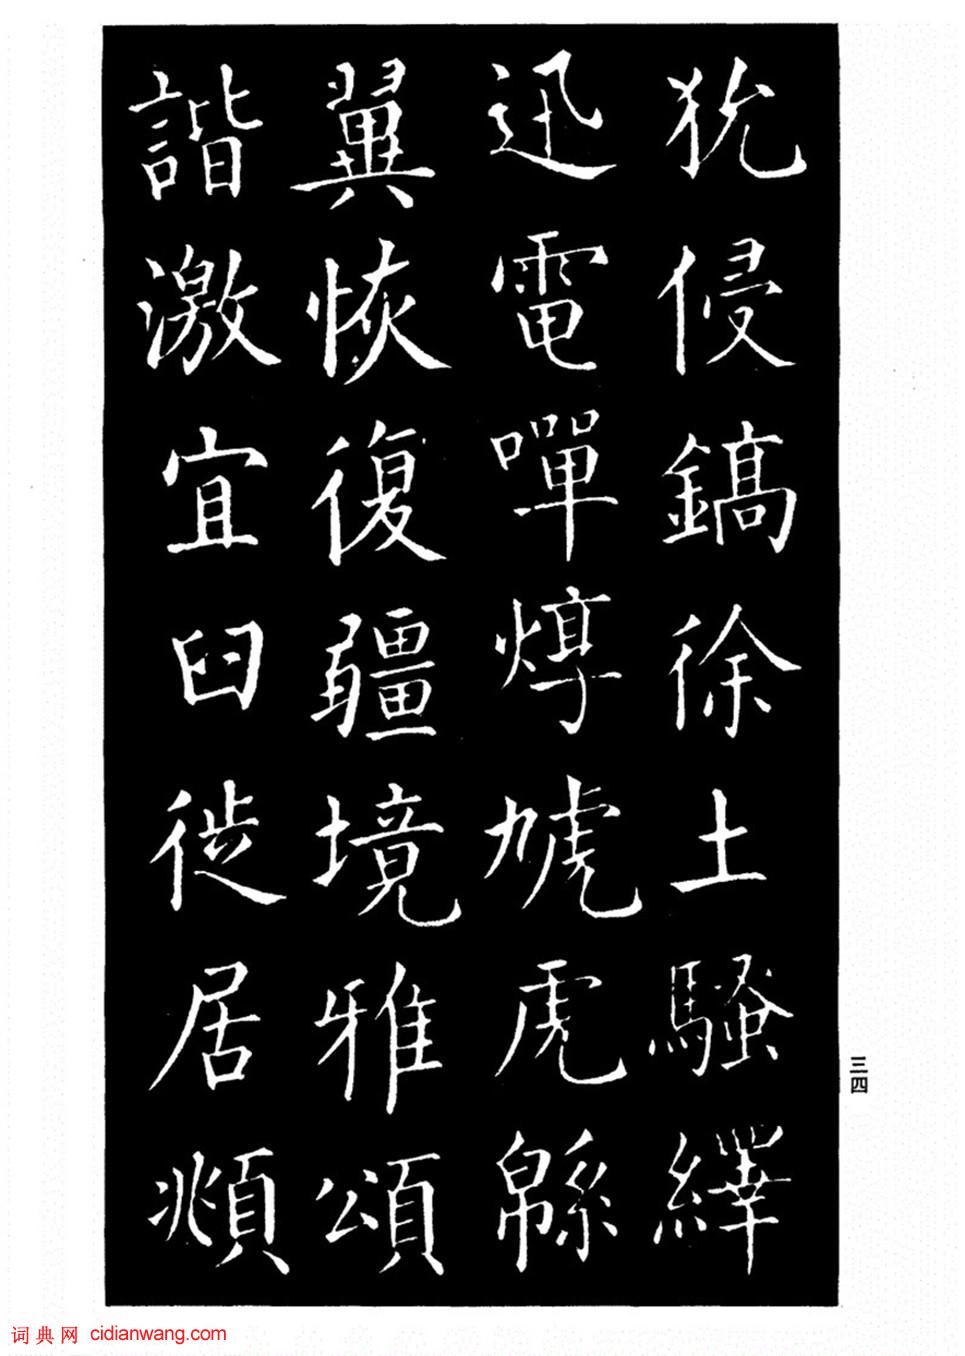 狁侵鎬徐土騷繹
迅電嘽焞虓虎緜
翼恢復疆境雅頌
諧激宜臼徙居頫
三四
词典网 cidianwang.com